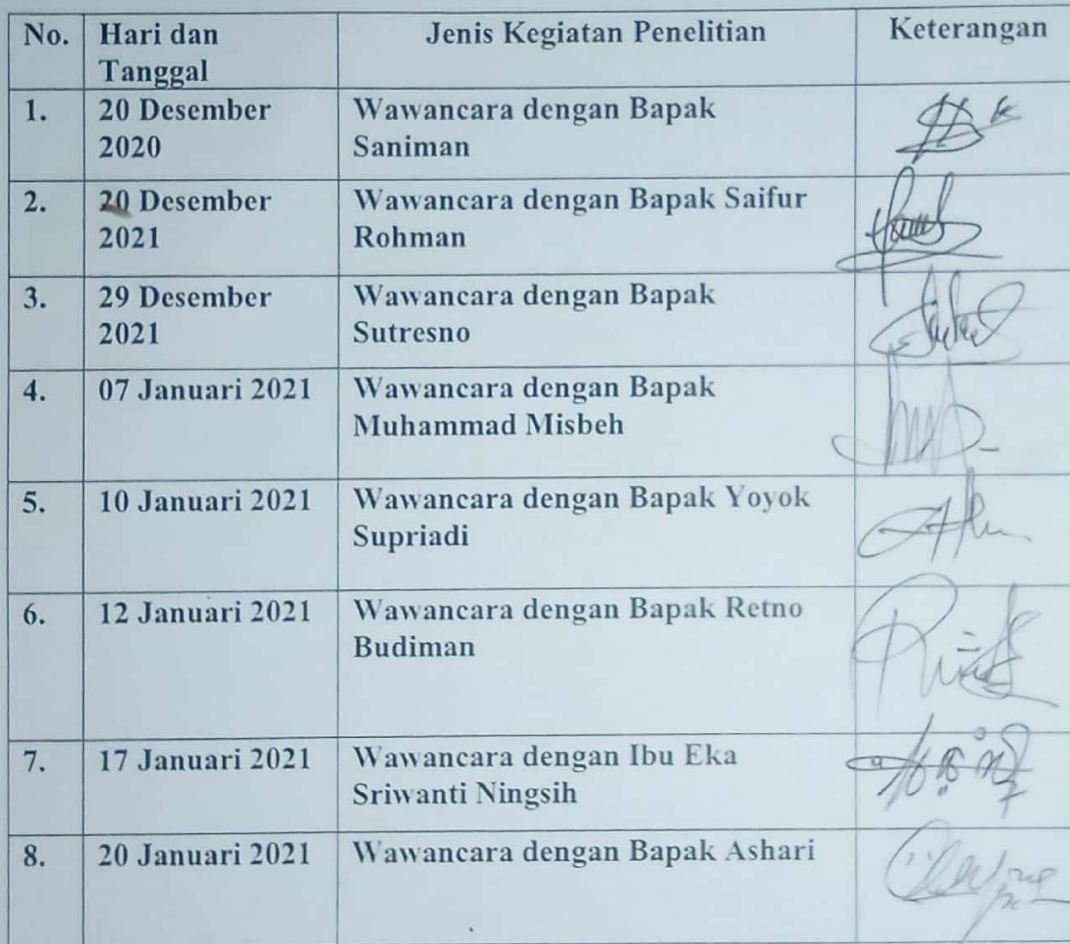 No. Hari dan Jenis Kegiatan Penelitian Keterangan
Tanggal
1. 20 Desember Wawancara dengan Bapak
2020 Saniman
2. 20 Desember Wawancara dengan Bapak Saifur
2021 Rohman
3. 29 Desember Wawancara dengan Bapak
2021 Sutresno
4. 07 Januari 2021 Wawancara dengan Bapak
Muhammad Misbeh
5. 10 Januari 2021 Wawancara dengan Bapak Yoyok
Supriadi
6. 12 Januari 2021 Wawancara dengan Bapak Retno
Budiman
7. 17 Januari 2021 Wawancara dengan Ibu Eka
Sriwanti Ningsih
8. 20 Januari 2021 Wawancara dengan Bapak Ashari